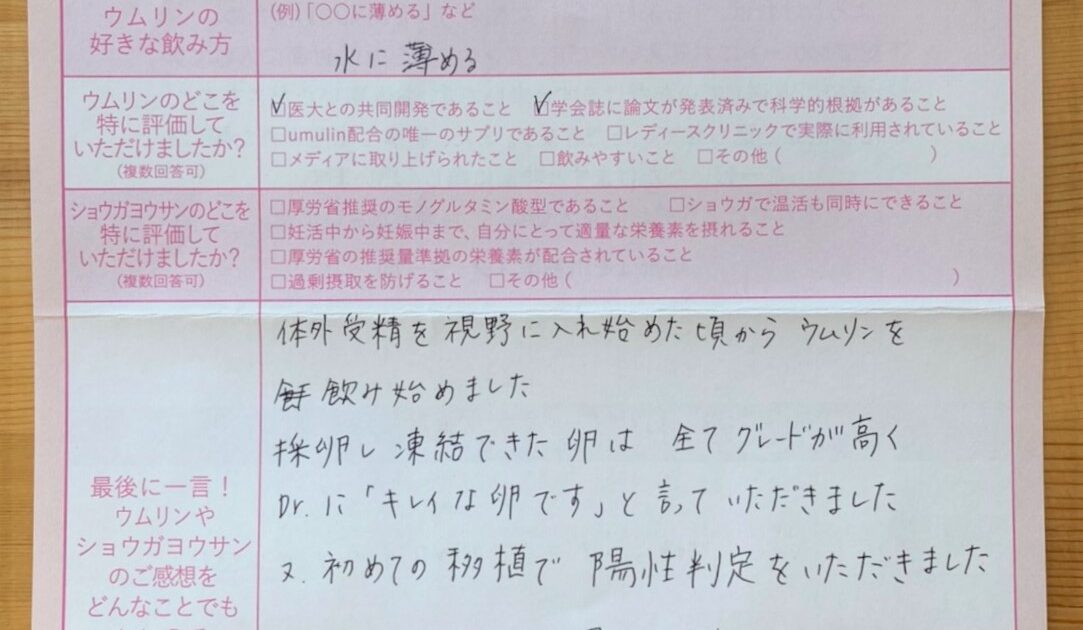 ウムリンの
好きな飲み方
(例)「〇〇に薄める」など
水に薄める
ウムリンのどこを
特に評価して
いただけましたか?
(複数回答可)
☑医大との共同開発であること ☑学会誌に論文が発表済みで科学的根拠があること
□umulin配合の唯一のサプリであること □レディースクリニックで実際に利用されていること
□メディアに取り上げられたこと □飲みやすいこと □その他( )
ショウガヨウサンのどこを
特に評価して
いただけましたか?
(複数回答可)
□厚労省推奨のモノグルタミン酸型であること □ショウガで温活も同時にできること
□妊活中から妊娠中まで、自分にとって適量な栄養素を摂れること
□厚労省の推奨量準拠の栄養素が配合されていること
□過剰摂取を防げること □その他( )
最後に一言!
ウムリンや
ショウガヨウサン
のご感想を
どんなことでも
体外受精を視野に入れ始めた頃からウムリンを
飲み始めました
採卵し凍結できた卵は 全てグレードが高く
Dr.に「キレイな卵です」と言っていただきました
又、初めての移植で陽性判定をいただきました